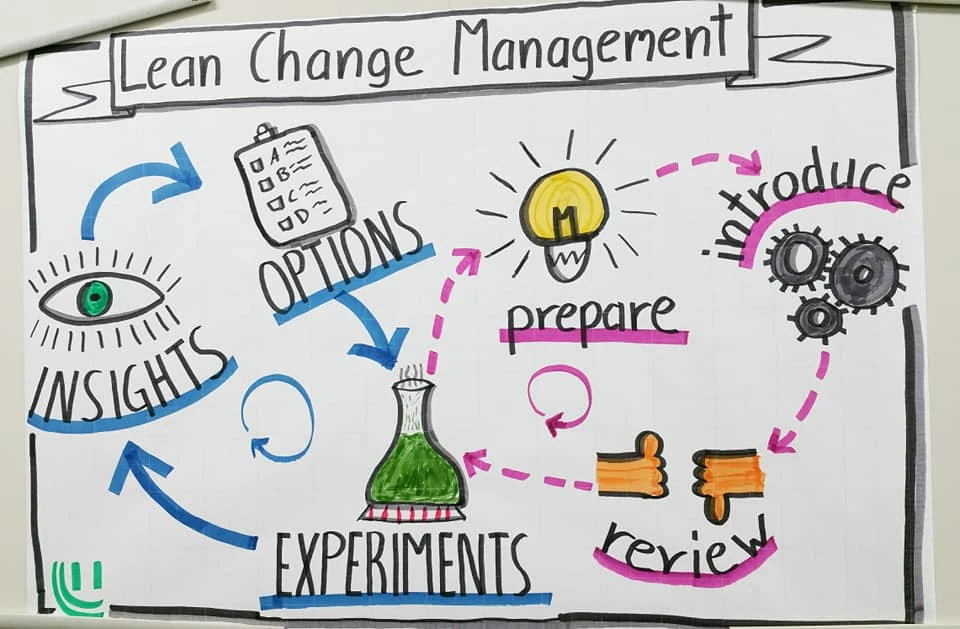 Lean Change Management
A
B
C
D
OPTIONS
INSIGHTS
EXPERIMENTS
prepare
introduce
review